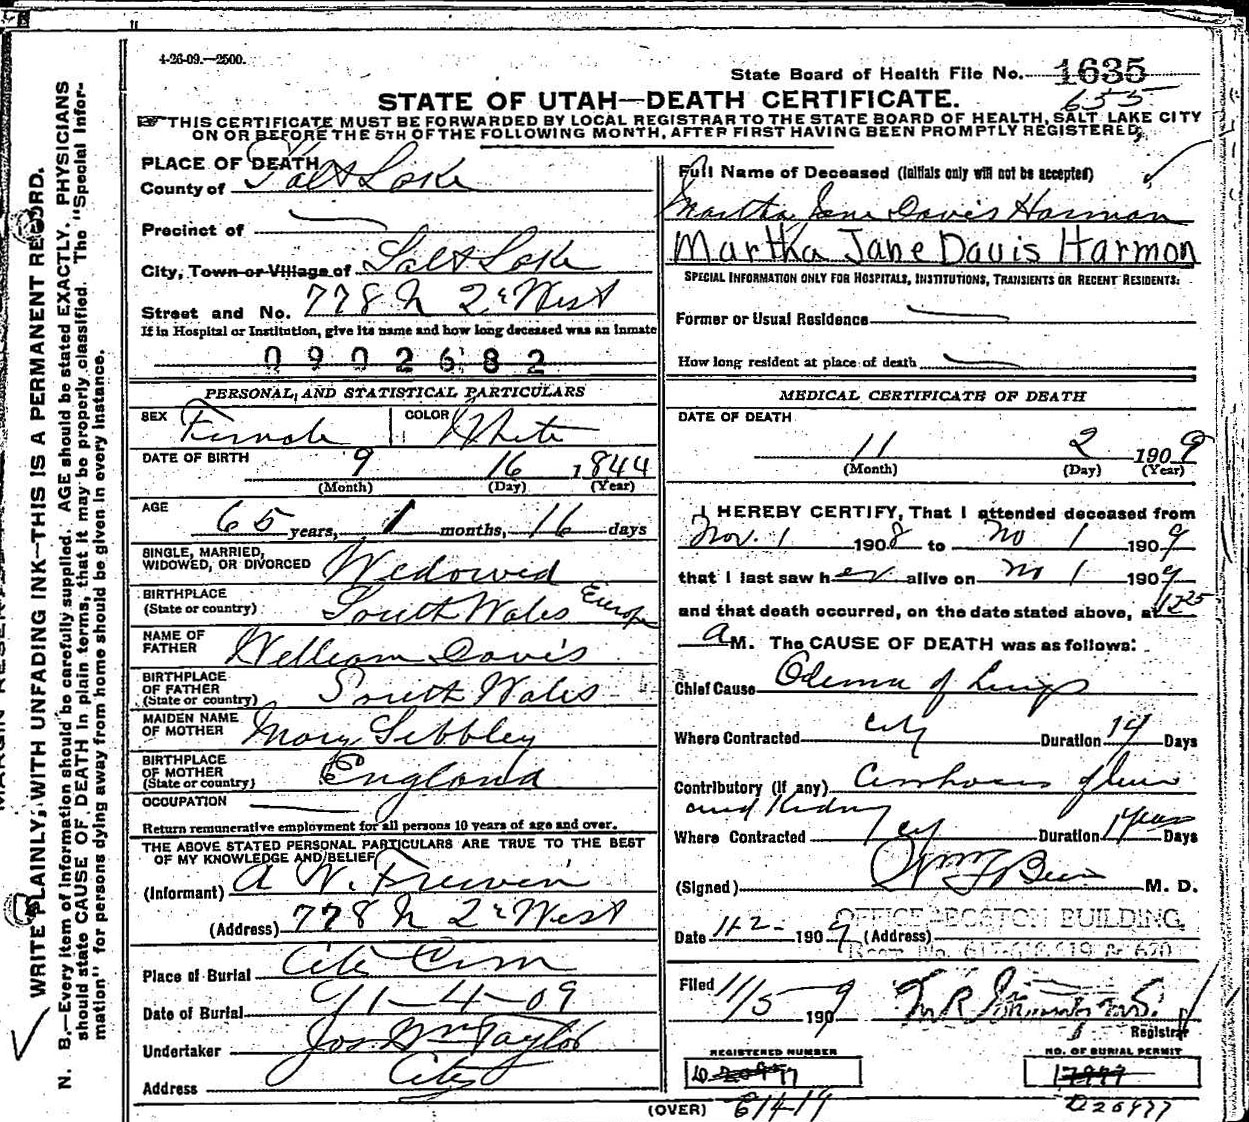 4-26-09.—2500.
State Board of Health File No. 1635
655
STATE OF UTAH—DEATH CERTIFICATE.
THIS CERTIFICATE MUST BE FORWARDED BY LOCAL REGISTRAR TO THE STATE BOARD OF HEALTH, SALT LAKE CITY
ON OR BEFORE THE 5TH OF THE FOLLOWING MONTH, AFTER FIRST HAVING BEEN PROMPTLY REGISTERED,
WRITE PLAINLY, WITH UNFADING INK—THIS IS A PERMANENT RECORD.
N. B.—Every item of information should be carefully supplied. AGE should be stated EXACTLY. PHYSICIANS
should state CAUSE OF DEATH in plain terms, that it may be properly classified. The "Special Infor-
mation" for persons dying away from home should be given in every instance.
PLACE OF DEATH
County of Salt Lake
Precinct of
City, Town or Village of Salt Lake
Street and No. 778 N 2nd West
If in Hospital or Institution, give its name and how long deceased was an inmate
0902682
PERSONAL AND STATISTICAL PARTICULARS
SEX Female COLOR White
DATE OF BIRTH 9 16 1844
(Month) (Day) (Year)
AGE 65 years, 1 months, 16 days
SINGLE, MARRIED,
WIDOWED, OR DIVORCED Widowed
BIRTHPLACE
(State or country) South Wales Europe
NAME OF
FATHER William Davis
BIRTHPLACE
OF FATHER
(State or country) South Wales
MAIDEN NAME
OF MOTHER Mary Sebbley
BIRTHPLACE
OF MOTHER
(State or country) England
OCCUPATION
Return remunerative employment for all persons 10 years of age and over.
THE ABOVE STATED PERSONAL PARTICULARS ARE TRUE TO THE BEST
OF MY KNOWLEDGE AND BELIEF
(Informant) A W. Frewin
(Address) 778 N 2nd West
Place of Burial City Cem
Date of Burial 11-4-09
Undertaker Jos Wm Taylor
Address City
Full Name of Deceased (Initials only will not be accepted)
Martha Jane Davis Harmon
Martha Jane Davis Harmon
SPECIAL INFORMATION ONLY FOR HOSPITALS, INSTITUTIONS, TRANSIENTS OR RECENT RESIDENTS:
Former or Usual Residence
How long resident at place of death
MEDICAL CERTIFICATE OF DEATH
DATE OF DEATH
11 2 1909
(Month) (Day) (Year)
I HEREBY CERTIFY, That I attended deceased from
Nov. 1 1908 to No 1 1909
that I last saw her alive on No 1 1909
and that death occurred, on the date stated above, at 1225
A M. The CAUSE OF DEATH was as follows:
Chief Cause Odema of Lungs
Where Contracted City Duration 14 Days
Contributory (if any) Cirrhosis of liver
and Kidney
Where Contracted City Duration 1 Year Days
(Signed) M. D.
Date 11-2- 1909 (Address) OFFICE BOSTON BUILDING,
Filed 11/5 1909
Registrar
REGISTERED NUMBER
NO. OF BURIAL PERMIT
(OVER)